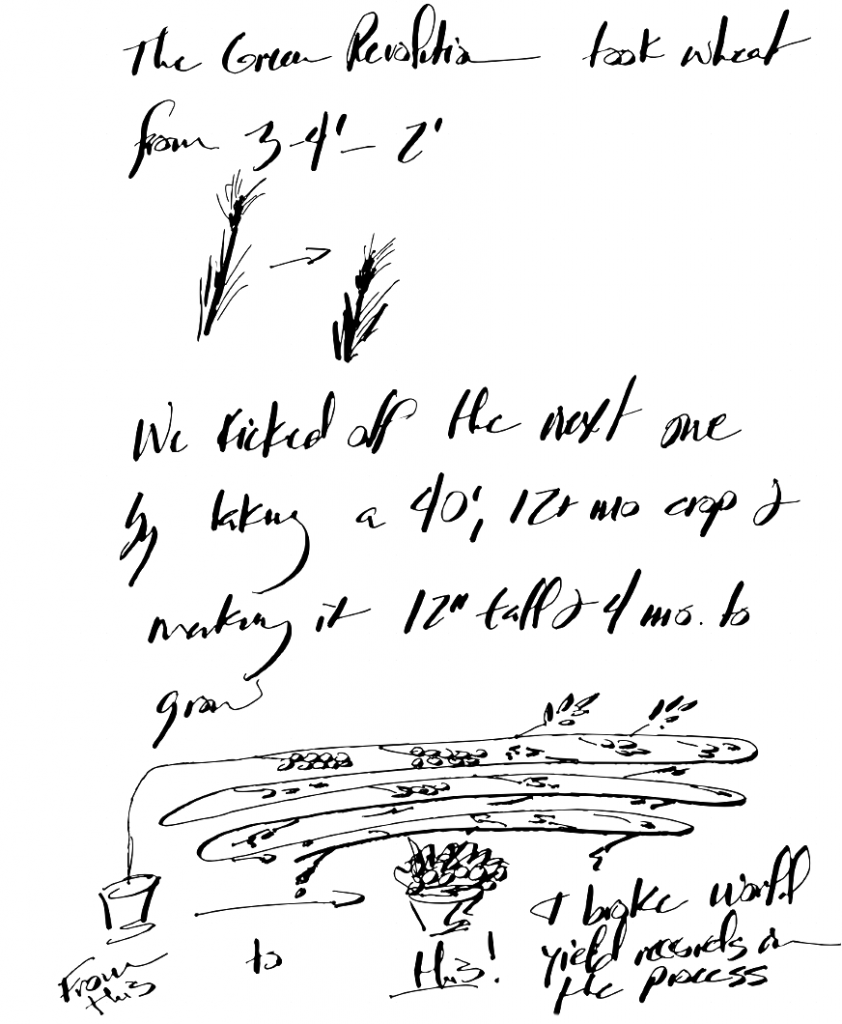 The Green Revolution took wheat
from 3-4' - 2'
We kicked off the next one
by taking a 40', 12+ mo crop &
making it 12" tall & 4 mo. to
grow
From
this
to
this!
& broke world
yield records in
the process